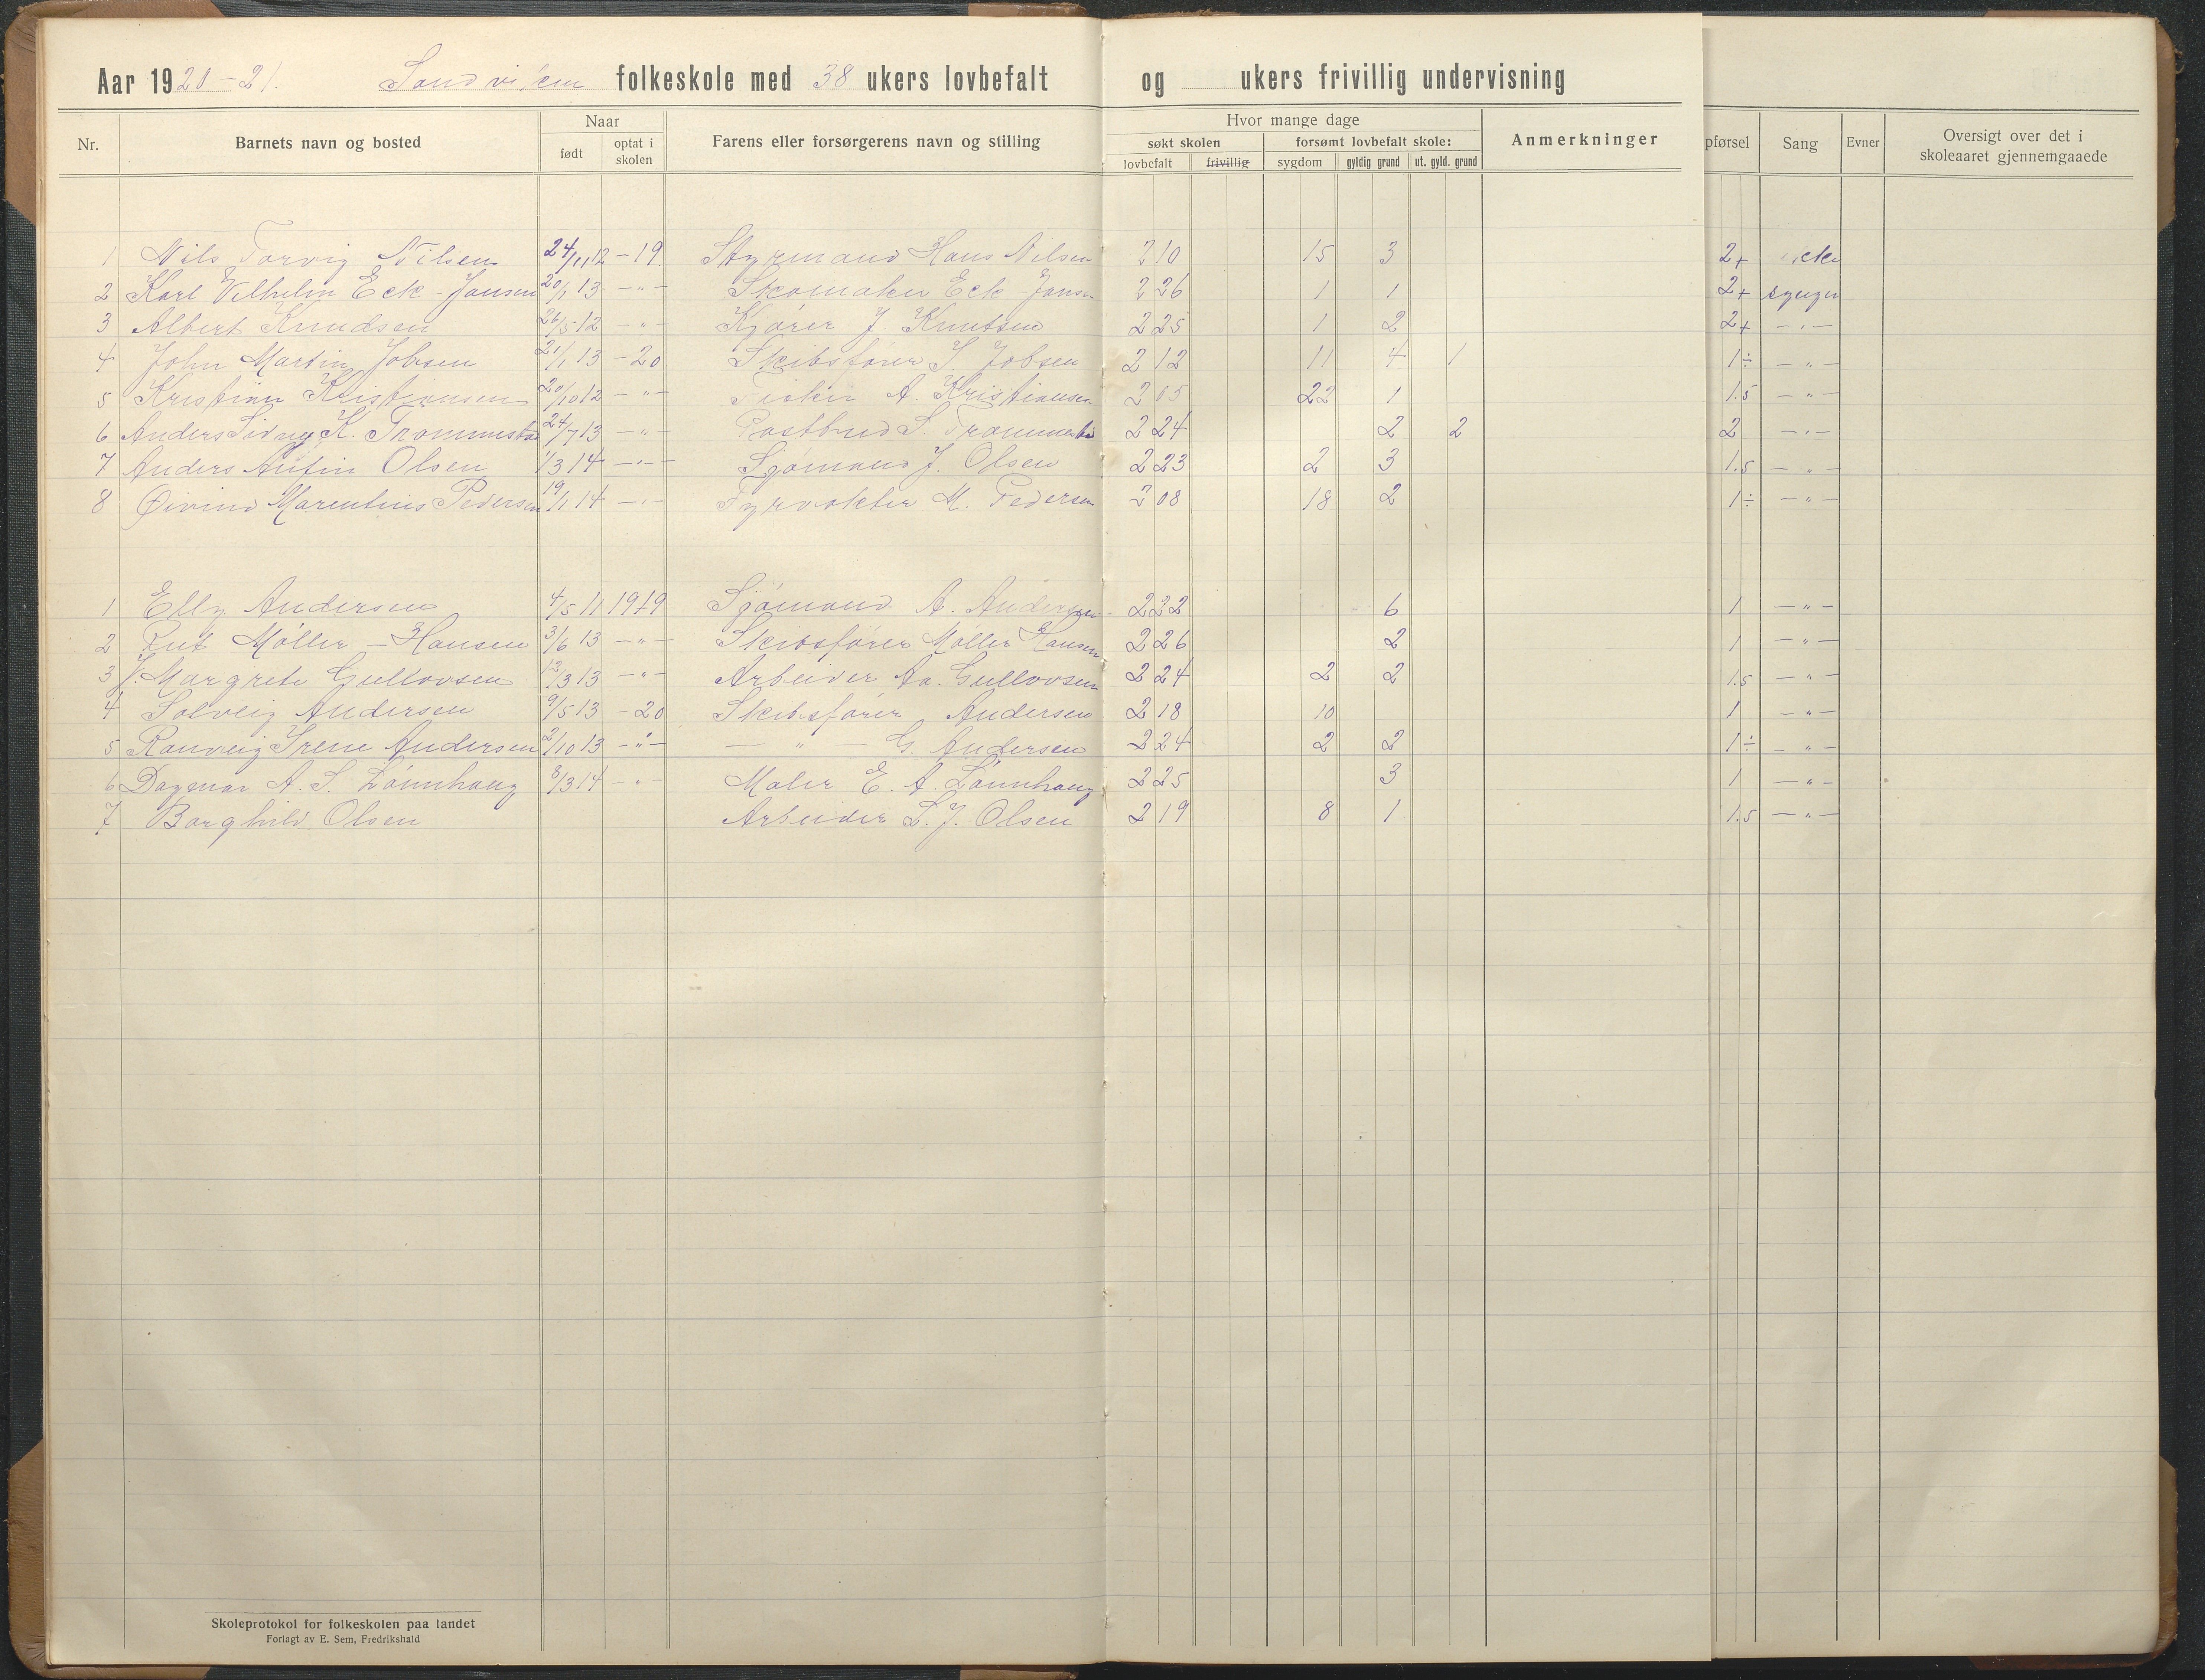 Aar 1920-21. Sandviken folkeskole med 38 ukers lovbefalt og ukers frivillig undervisning
Nr. Barnets navn og bosted Naar født optat i skolen Farens eller forsørgerens navn og stilling Hvor mange dage søkt skolen lovbefalt frivillig forsømt lovbefalt skole: sygdom gyldig grund ut. gyld. grund Anmerkninger pførsel Sang Evner Oversigt over det i skoleaaret gjennemgaaede
1 Nils Torvig Nilsen 24/11 12 - 19 Styrmand Hans Nilsen 210 15 3 2+ ikke
2 Karl Vilhelm Eck-Jansen 20/1 13 - " - Skomaker Eck-Jansen 226 1 1 2+ synger
3 Albert Knudsen 26/5 12 - " - Kjører J. Knutsen 225 1 2 2+ - " -
4 John Martin Jobsen 21/1 13 - 20 Skibsfører S. Jobsen 212 11 4 1 1÷ - " -
5 Kristian Kristiansen 20/10 12 - " - Fisker A. Kristiansen 205 22 1 1.5 - " -
6 Anders Sidney K. Trommestad 24/7 13 - " - Postbud S. Trommesta 224 2 2 2 - " -
7 Anders Antin Olsen 1/3 14 - " - Sjømand J. Olsen 223 2 3 1.5 - " -
8 Øivind Marentius Pedersen 19/1 14 - " - Fyrvokter M. Pedersen 208 18 2 1÷ - " -
1 Elly Andersen 4/5 11 1919 Sjømand A. Andersen 222 6 1 - " -
2 Rut Møller-Hansen 3/6 13 - " - Skibsfører Møller Hansen 226 2 1 - " -
3 J. Margrete Gullovsen 12/3 13 - " - Arbeider Aa. Gullovsen 224 2 2 1.5 - " -
4 Solveig Andersen 9/5 13 - 20 Skibsfører Andersen 218 10 1 - " -
5 Ranveig Irene Andersen 2/10 13 - " - - " - G. Andersen 224 2 2 1÷ - " -
6 Dagmar A. S. Lønnhaug 8/3 14 - " - Maler E. A. Lønnhaug 225 3 1 - " -
7 Borghild Olsen Arbeider L. J. Olsen 219 8 1 1.5 - " -
Skoleprotokol for folkeskolen paa landet
Forlagt av E. Sem, Fredrikshald